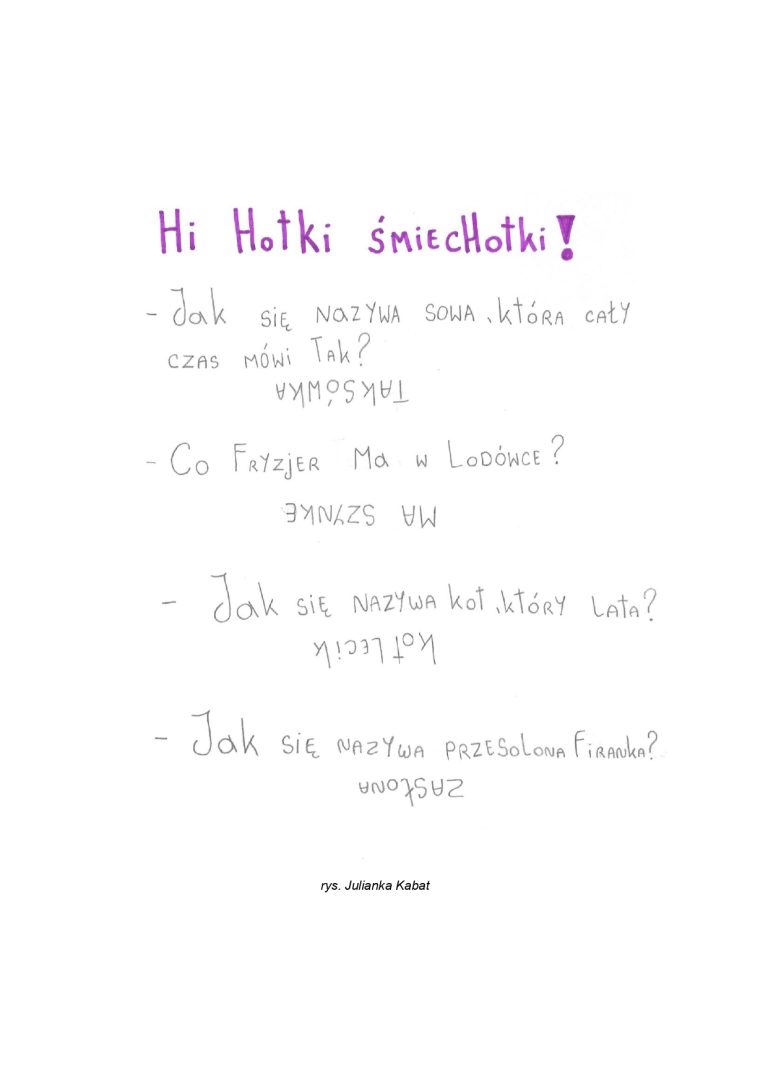 Hi Hotki śmiecHotki!
- Jak się nazywa sowa, która cały
czas mówi Tak?
TAKSÓWKA
- Co Fryzjer Ma w Lodówce?
MA SZYNKE
- Jak się nazywa kot, który lata?
kot Lecik
- Jak się nazywa przesolona Firanka?
ZASŁONA
rys. Julianka Kabat